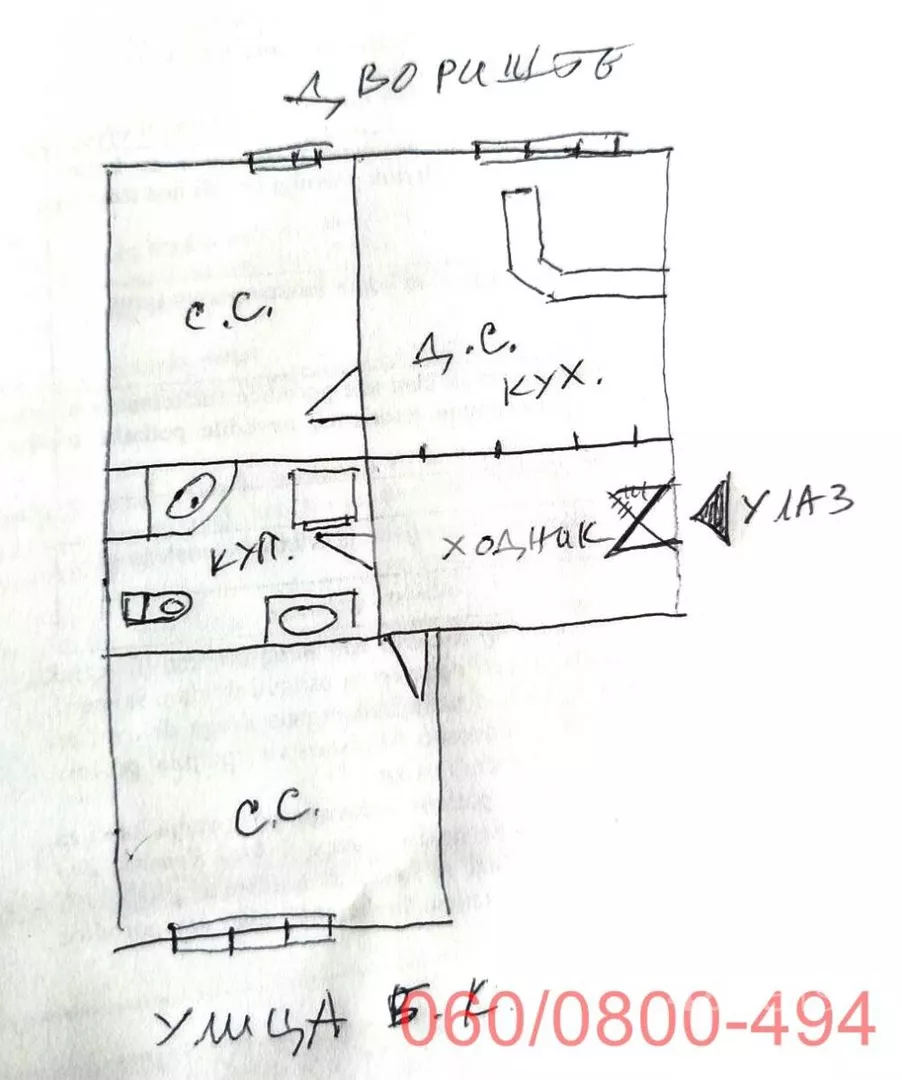 ДВОРИШТЕ
С.С.
Д.С.
КУХ.
УЛАЗ
ХОДНИК
КУП.
С.С.
УЛИЦА Б.К.
060/0800-494